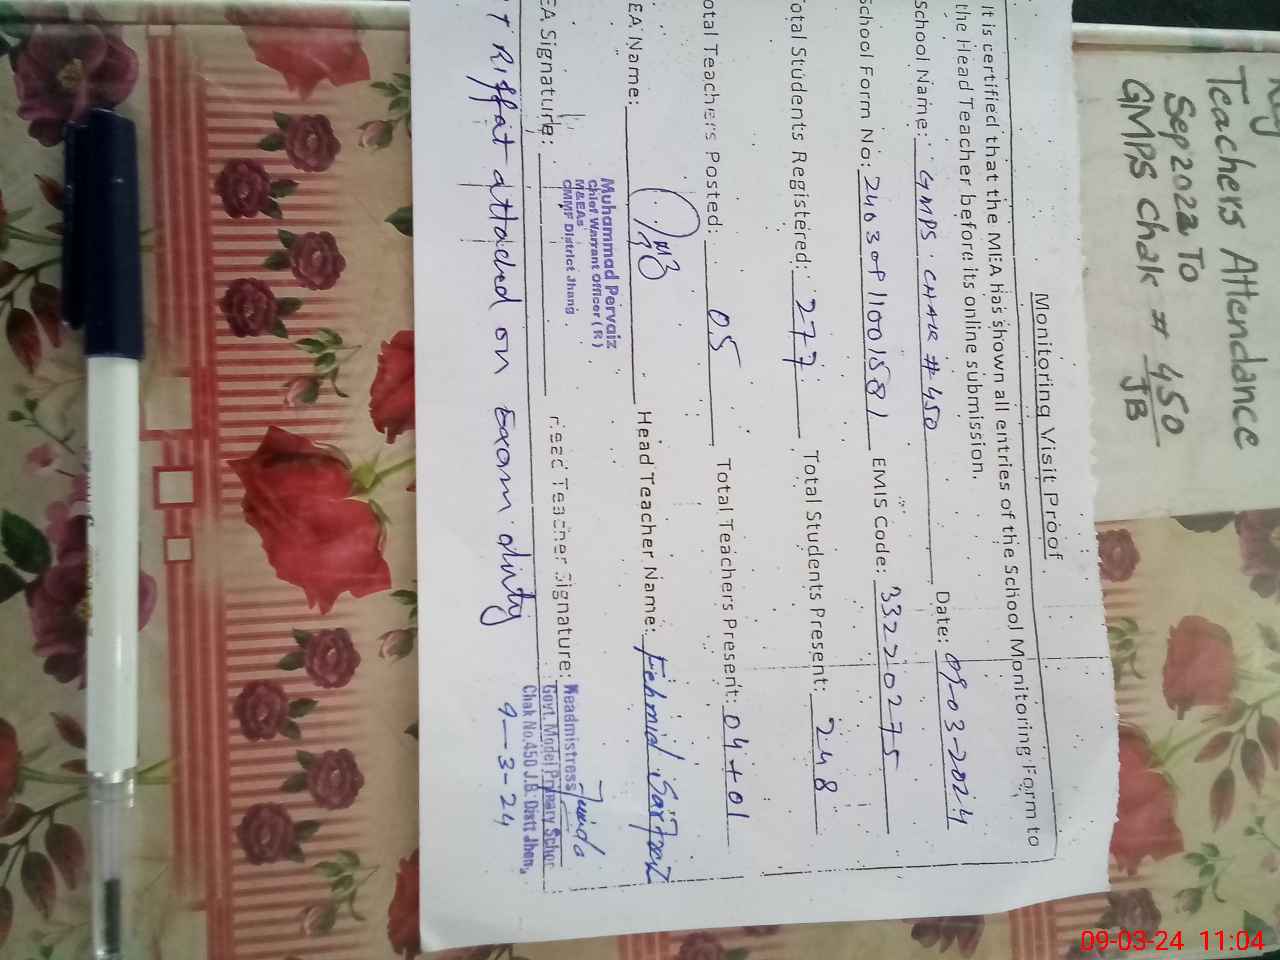 Teachers Attendance
Sep 2022 To
GMPS Chak # 450
JB
Monitoring Visit Proof
It is certified that the MEA has shown all entries of the School Monitoring Form to
the Head Teacher before its online submission.
School Name: GMPS CHAK # 450 Date: 09-03-2024
School Form No: EMIS Code: 33220275
otal Students Registered: 277 Total Students Present: 248
otal Teachers Posted: 05 Total Teachers Present: 04+01
EA Name: Head Teacher Name:
Muhammad Pervaiz
Chief Warrant Officer (R)
M&EAs
CMMF District Jhang
EA Signature: Head Teacher Signature:
Headmistress
Govt. Model Primary School
Chak No.450 J.B. Distt Jhang
Riffat attached on Exam duty
9-3-24
09-03-24 11:04